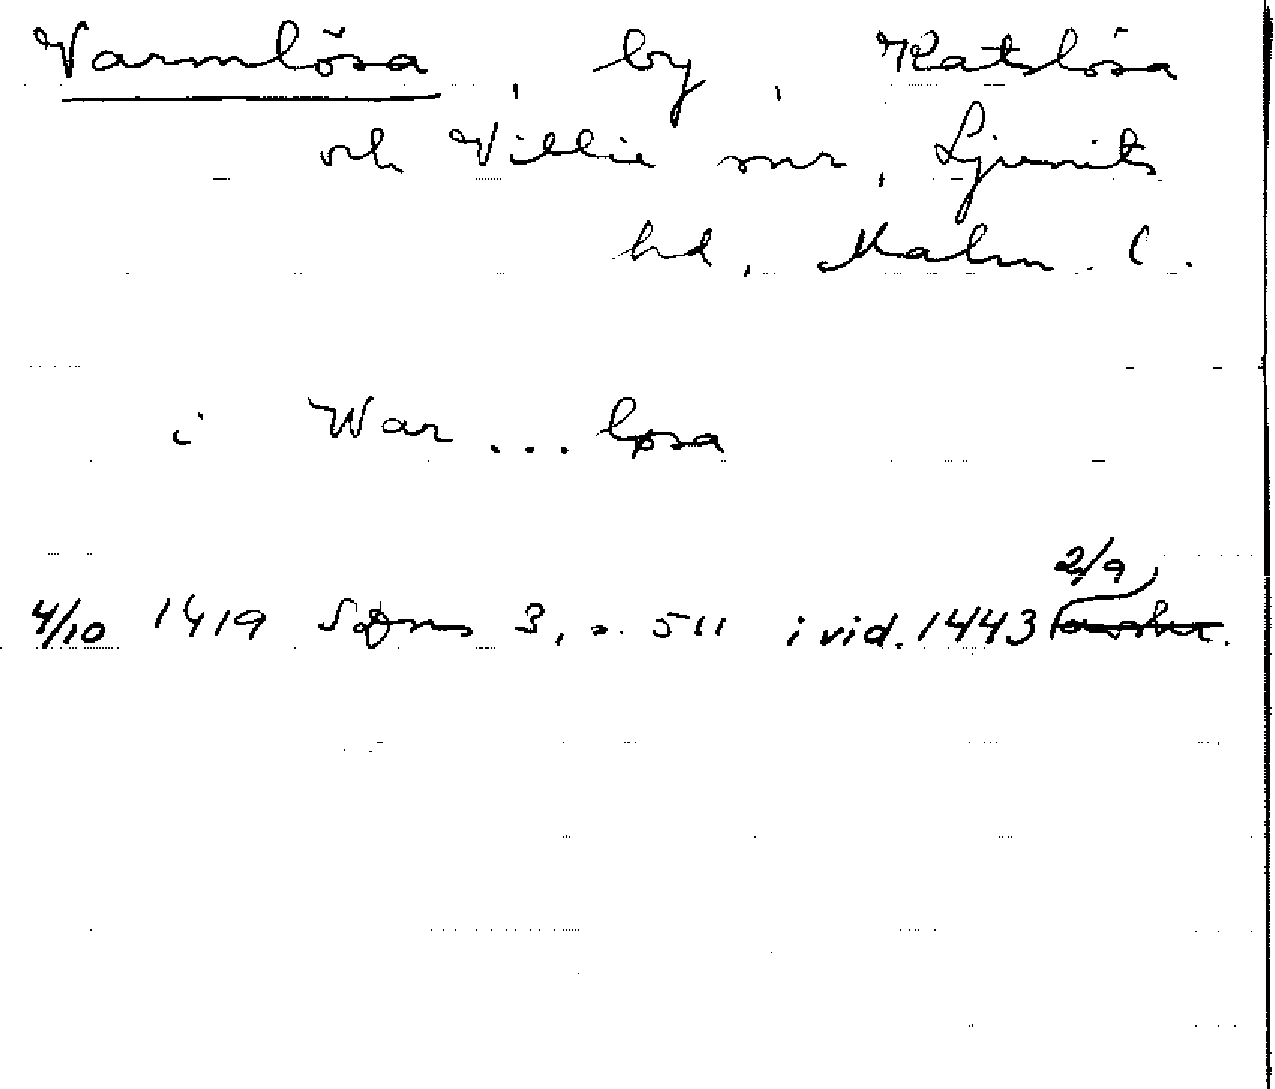 Varmlösa, by, Katslösa
och Villie snr, Ljunits
hd, Malm. l.
i War ... løsa
2/9
4/10 1419 SDns 3, s. 511 i vid. 1443